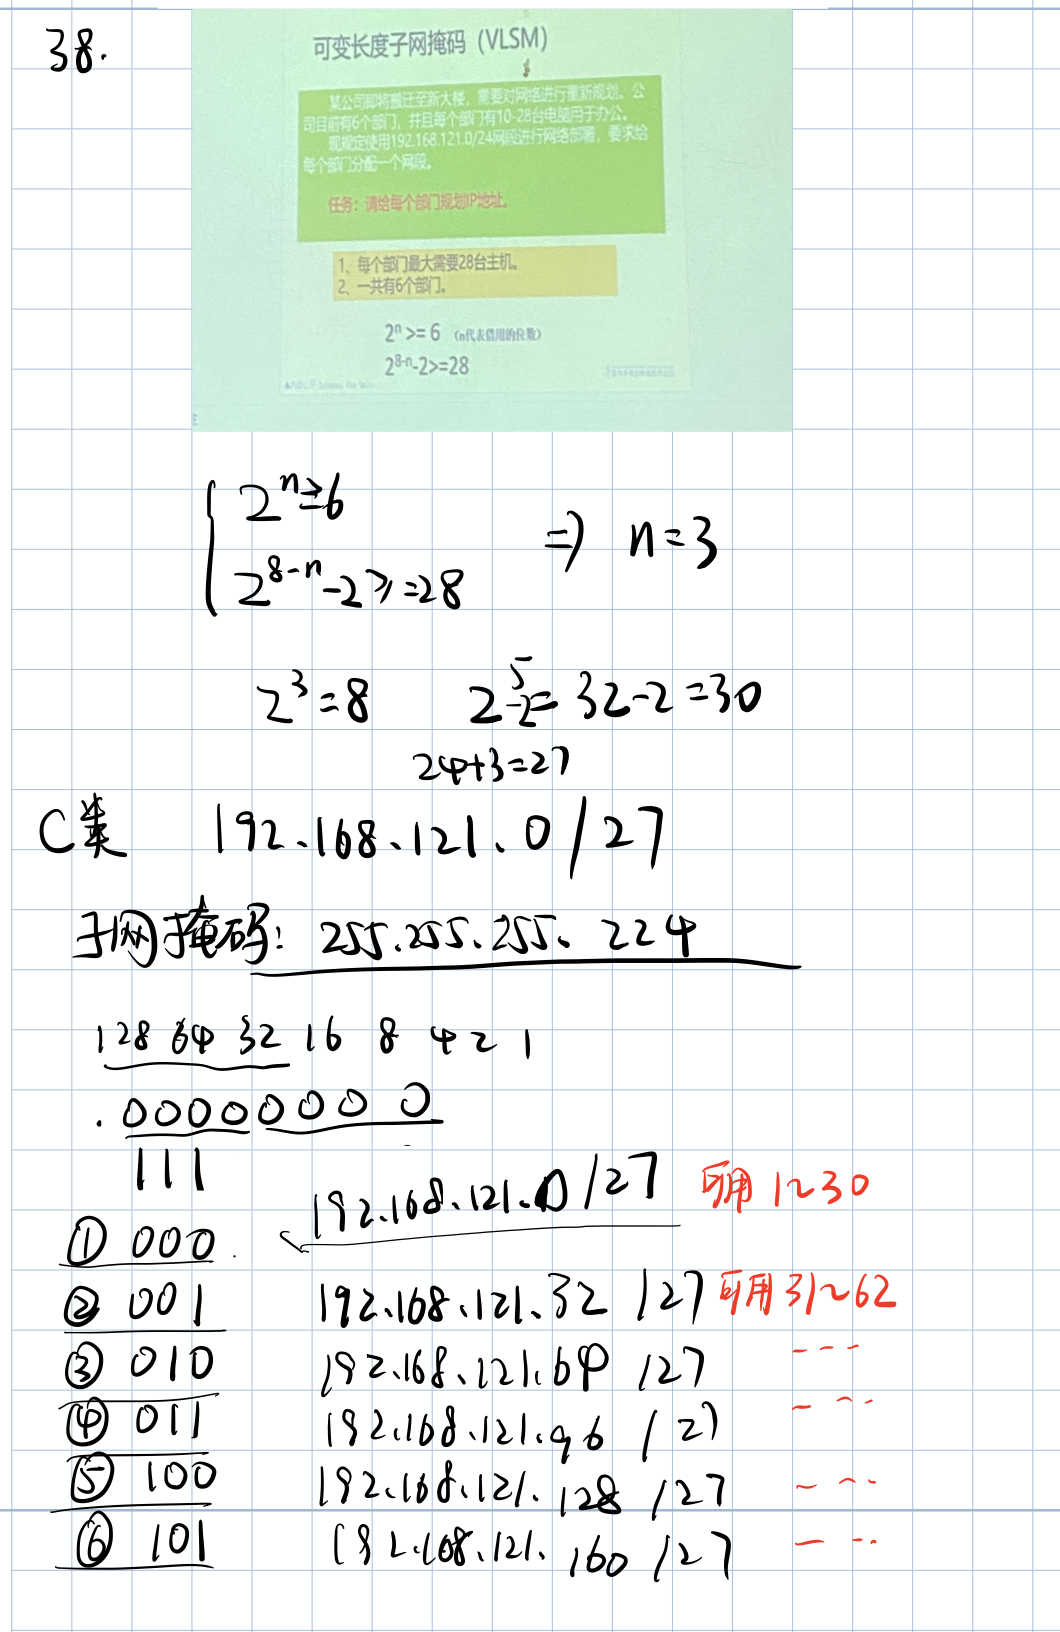 38.
可变长度子网掩码（VLSM）
某公司即将搬迁至新大楼，需要对网络进行重新规划。公
司目前有6个部门，并且每个部门有10-28台电脑用于办公。
现规定使用192.168.121.0/24网段进行网络部署，要求给
每个部门分配一个网段。
任务：请给每个部门规划IP地址。
1、每个部门最大需要28台主机。
2、一共有6个部门。
2ⁿ>= 6 （n代表借用的位数）
2⁸⁻ⁿ-2>=28
2ⁿ≥6
2⁸⁻ⁿ-2≥=28 => n=3
2³=8 2⁵-2= 32-2=30
24+3=27
C类 192.168.121.0/27
子网掩码: 255.255.255.224
128 64 32 16 8 4 2 1
.00000000
111
192.168.121.0/27 可用 1~30
① 000
② 001 192.168.121.32 /27 可用 31~62
③ 010 192.168.121.64 /27 ---
④ 011 192.168.121.96 /27 ---
⑤ 100 192.168.121.128 /27 ---
⑥ 101 192.168.121.160 /27 ---